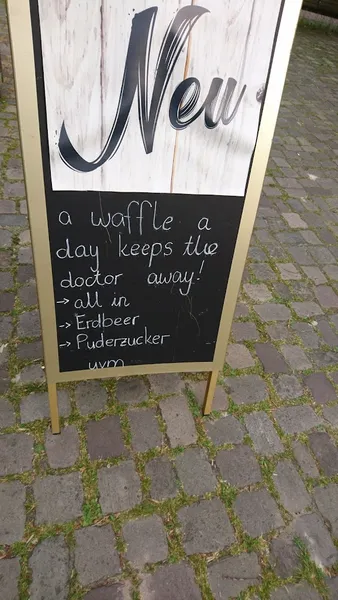 New
a waffle a
day keeps the
doctor away!
→ all in
→ Erdbeer
→ Puderzucker
uvm